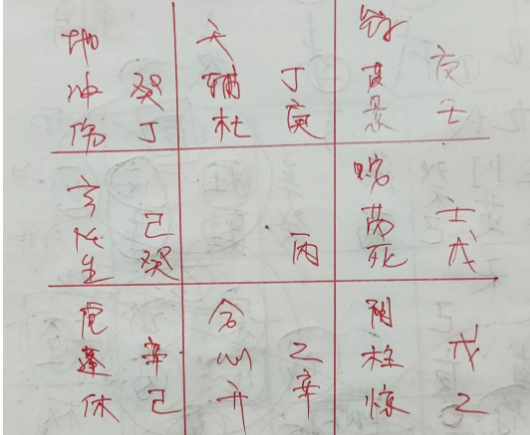 地
冲 癸
伤 丁
天
辅 丁
杜 庚
符
英 庚
景 壬
玄
任 己
生 癸
丙
蛇
芮 壬
死 戊
虎
蓬 辛
休 己
合
心 乙
开 辛
阴
柱 戊
惊 乙